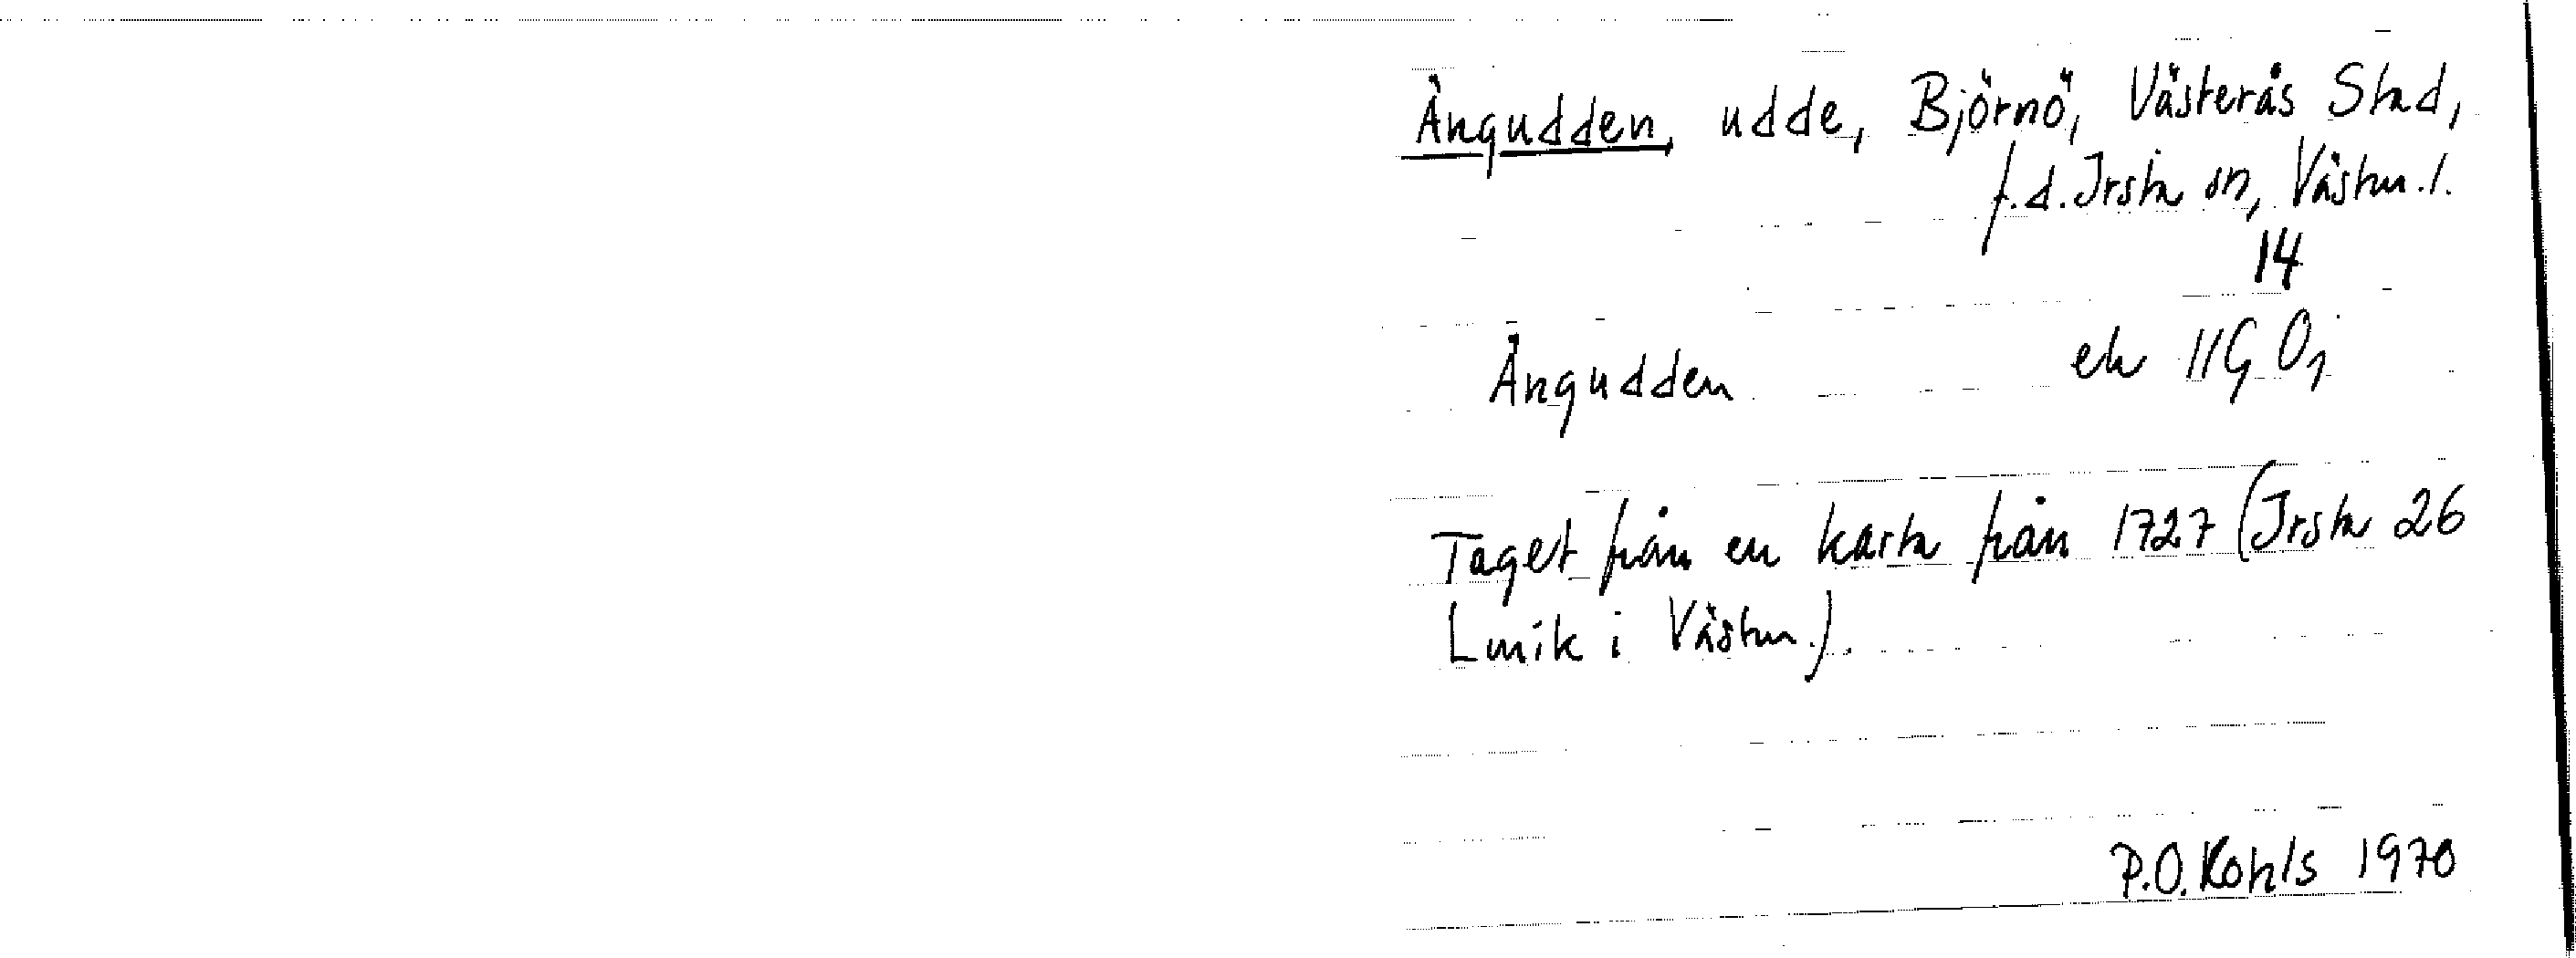 Ängudden, udde, Björnö, Västerås Stad,
f.d. Irsta sn, Västm. l.
14
Ängudden ek 11G 0j
Taget från en karta från 1727 (Irsta 26
Lmik i Västm.).
P.O. Kohls 1970